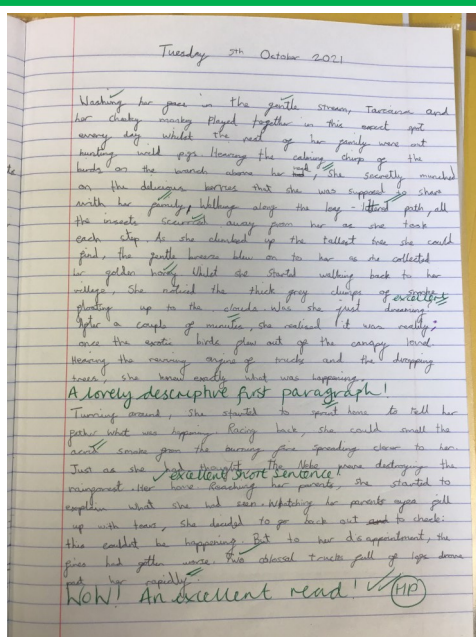 Tuesday 5th October 2021
Washing her face in the gentle stream, Tarcanua and
her cheeky monkey played together in this exact spot
every day whilst the rest of her family were out
hunting wild pigs. Hearing the calming chirp of the
birds on the branch above her, She secretly munched
on the delicious berries that she was supposed to share
with her family, Walking along the log - path, all
the insects scurried away from her as she took
each step. As she climbed up the tallest tree she could
find, the gentle breeze blew on to her as she collected
her golden honey. Whilst she started walking back to her
village, She noticed the thick grey clumps of smoke
excellent!
floating up to the clouds. Was she just dreaming
After a couple of minutes, she realised it was really;
once the exotic birds flew out of the canopy
Hearing the revving engine of trucks and the dropping
trees, she knew exactly what was happening.
A lovely descriptive first paragraph!
Turning around, She started to sprint home to tell her
father what was happening. Racing back, she could smell the
acrid smoke from the burning fire spreading closer to her.
Just as she had thought. The were destroying the
excellent short sentence!
rainforest. Her home. Reaching her parents, She started to
explain what she had seen. Whatching her parents eyes fill
up with tears, she decided to go back out to check:
this couldnt be happening. But to her disappointment, the
fires had gotten worse. Two colossal trucks full of logs drove
past her rapidly.
WOW! An excellent read! HP